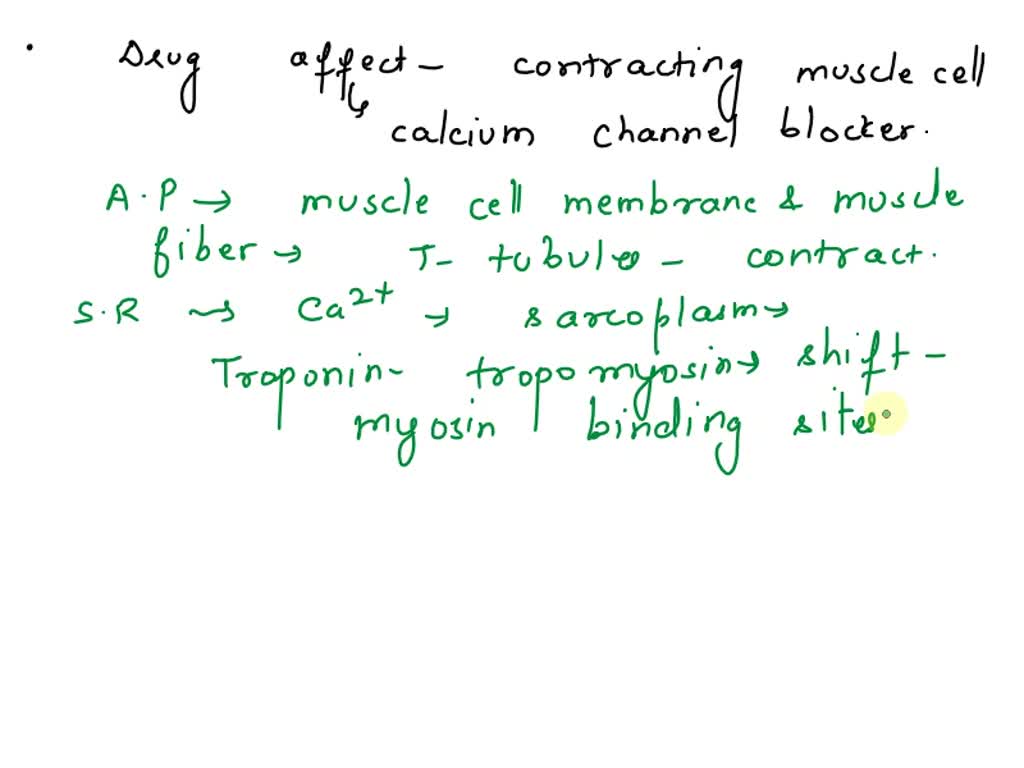 . Drug affect - contracting muscle cell
↳ calcium channel blocker.
A.P → muscle cell membrane & muscle
fiber → T- tubule - contract.
S.R → Ca2+ → sarcoplasm →
Troponin- tropomyosin → shift -
myosin binding site